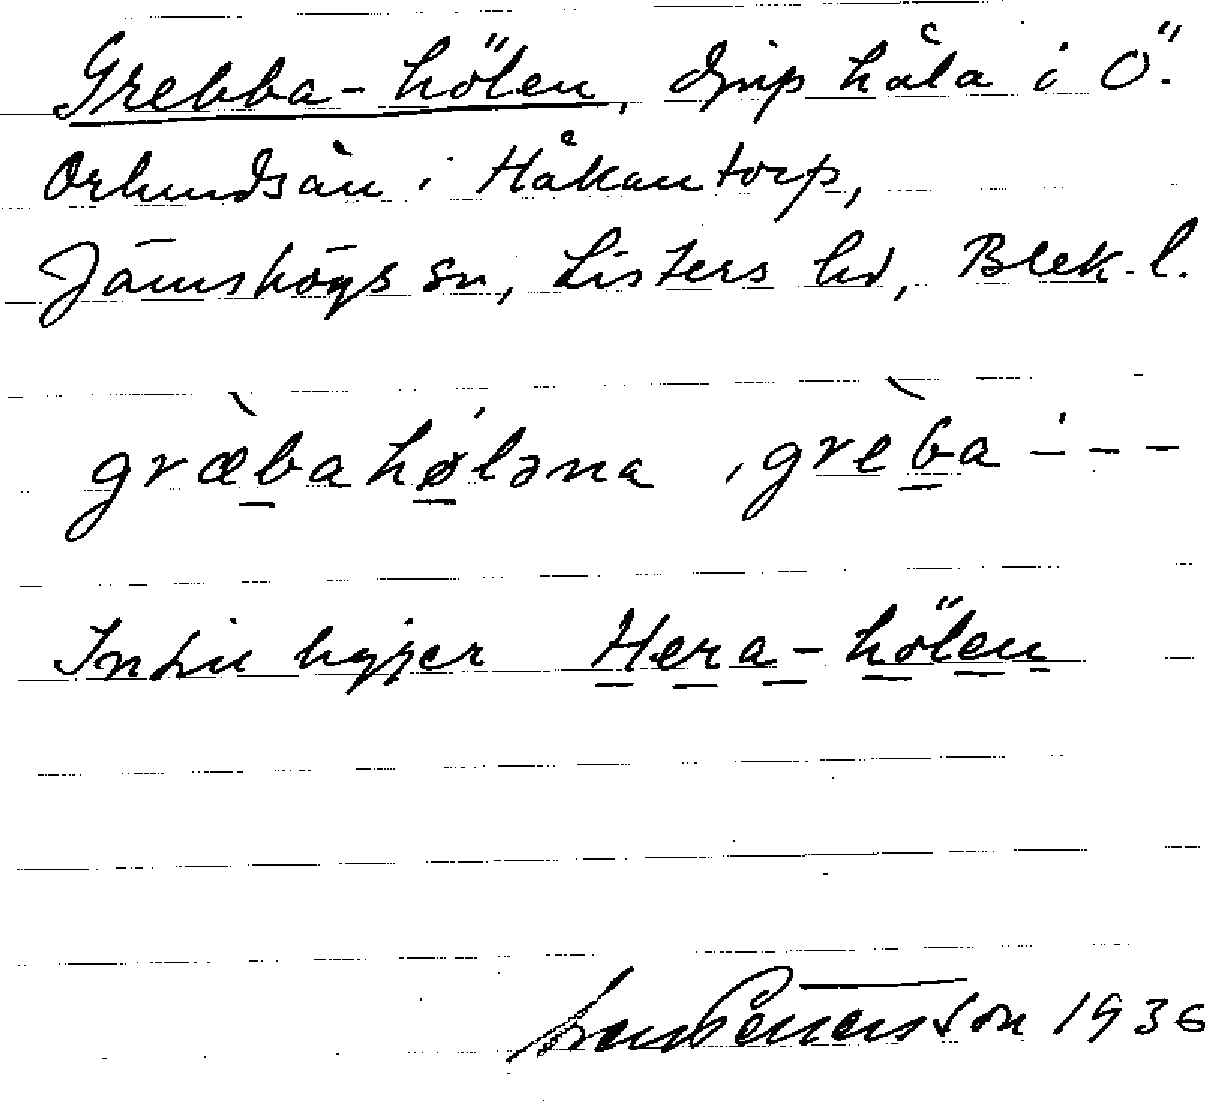 Grebba-hölen, djup håla i Ö.
Orlundsån i Håkantorp,
Jämshögs sn, Listers hd, Blek. l.
græ̀bahø̀ləna, grèba - - -
Intill ligger Hera-hölen
Sven Petersson 1936